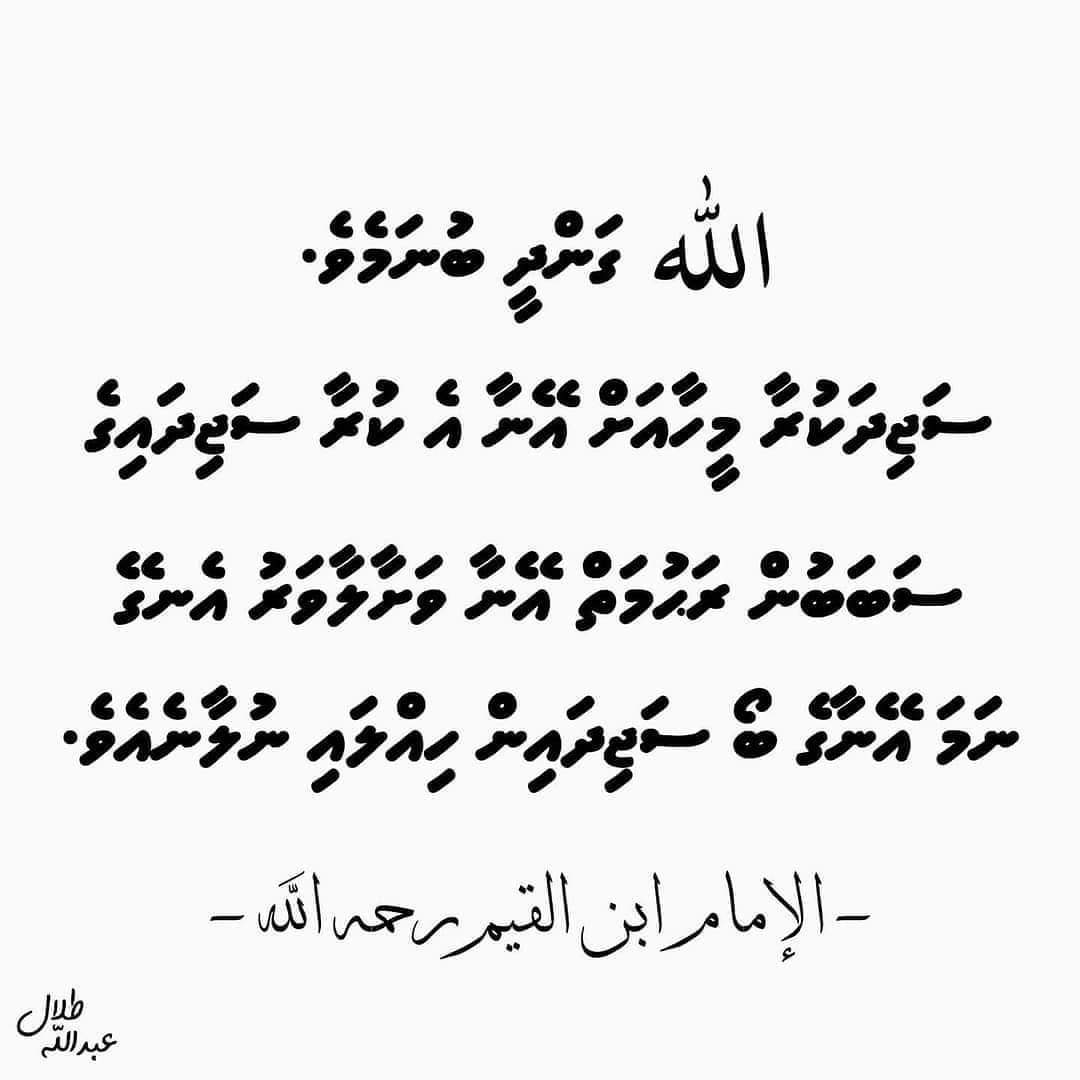 الله ގަންދީ ބުނަމެވެ.
ސަޖިދަކުރާ މީހާއަށް އޭނާ އެ ކުރާ ސަޖިދައިގެ
ސަބަބުން ރަޙުމަތް އޭނާ ވަށާލާވަރު އެނގޭ
ނަމަ އޭނާގެ ބޯ ސަޖިދައިން ހިއްލައި ނުލާނެއެވެ.
- الإمام ابن القيم رحمه الله -
طلال
عبدالله